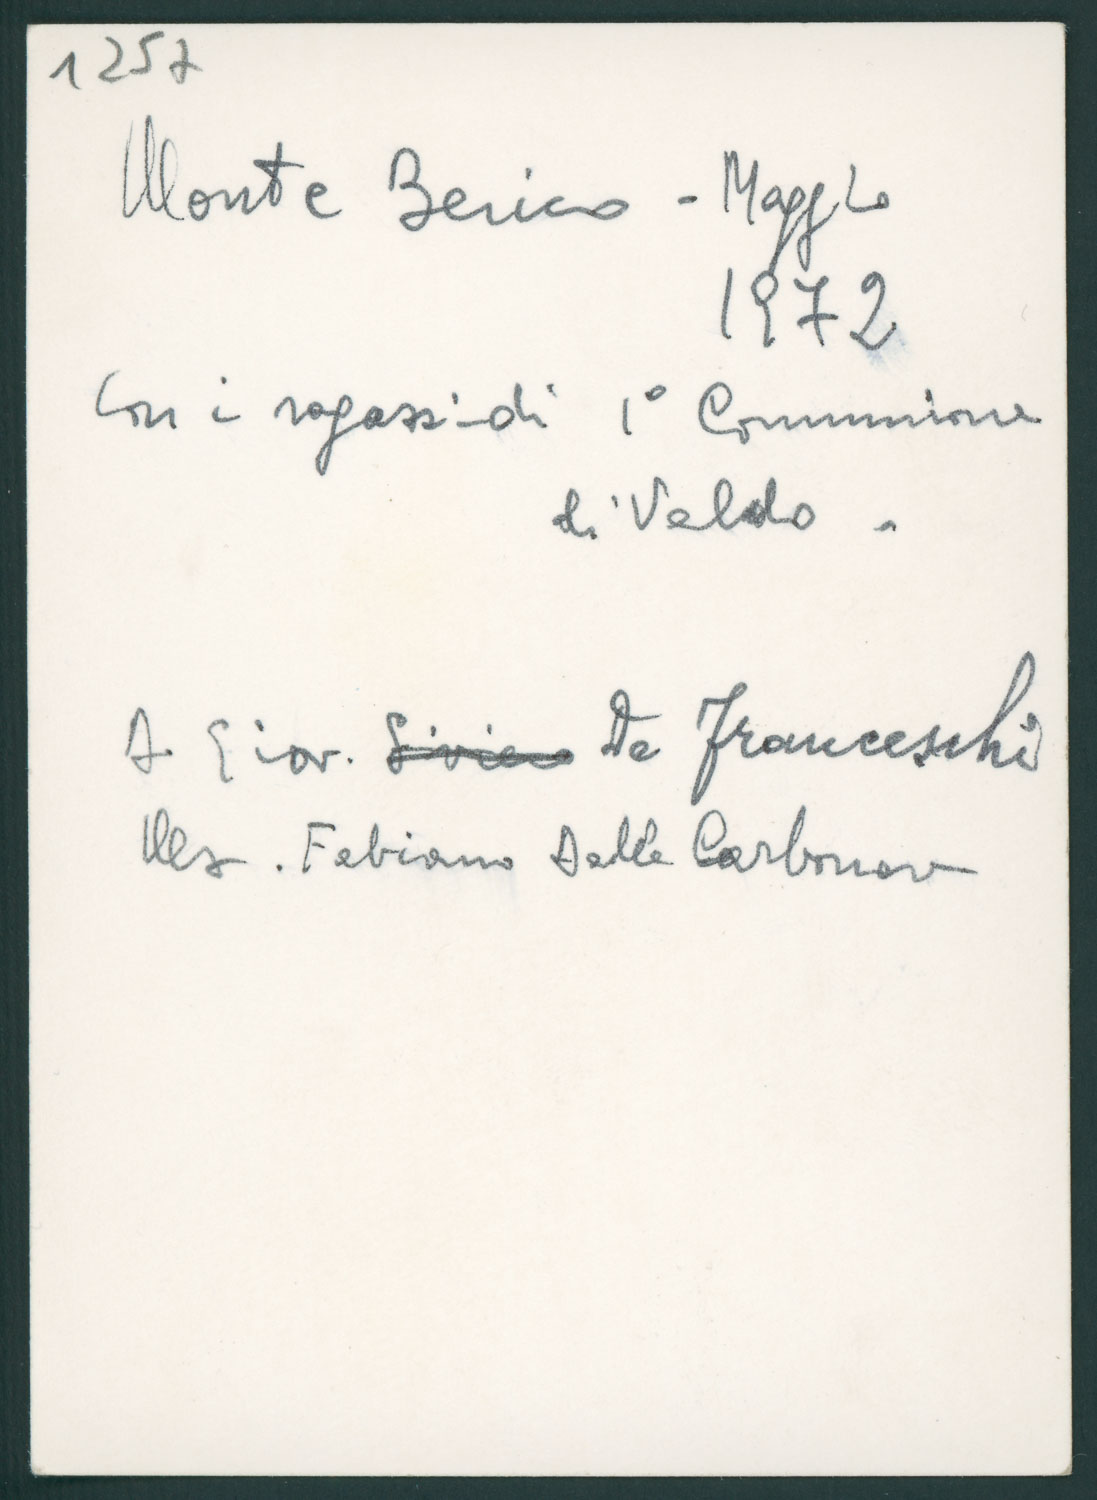 1257
Monte Berico - Maggio
1972
Con i ragazzi di 1° Comunione
di Valdo -
D. Giov. De Franceschi
Ms. Fabiano Dalle Carbonar